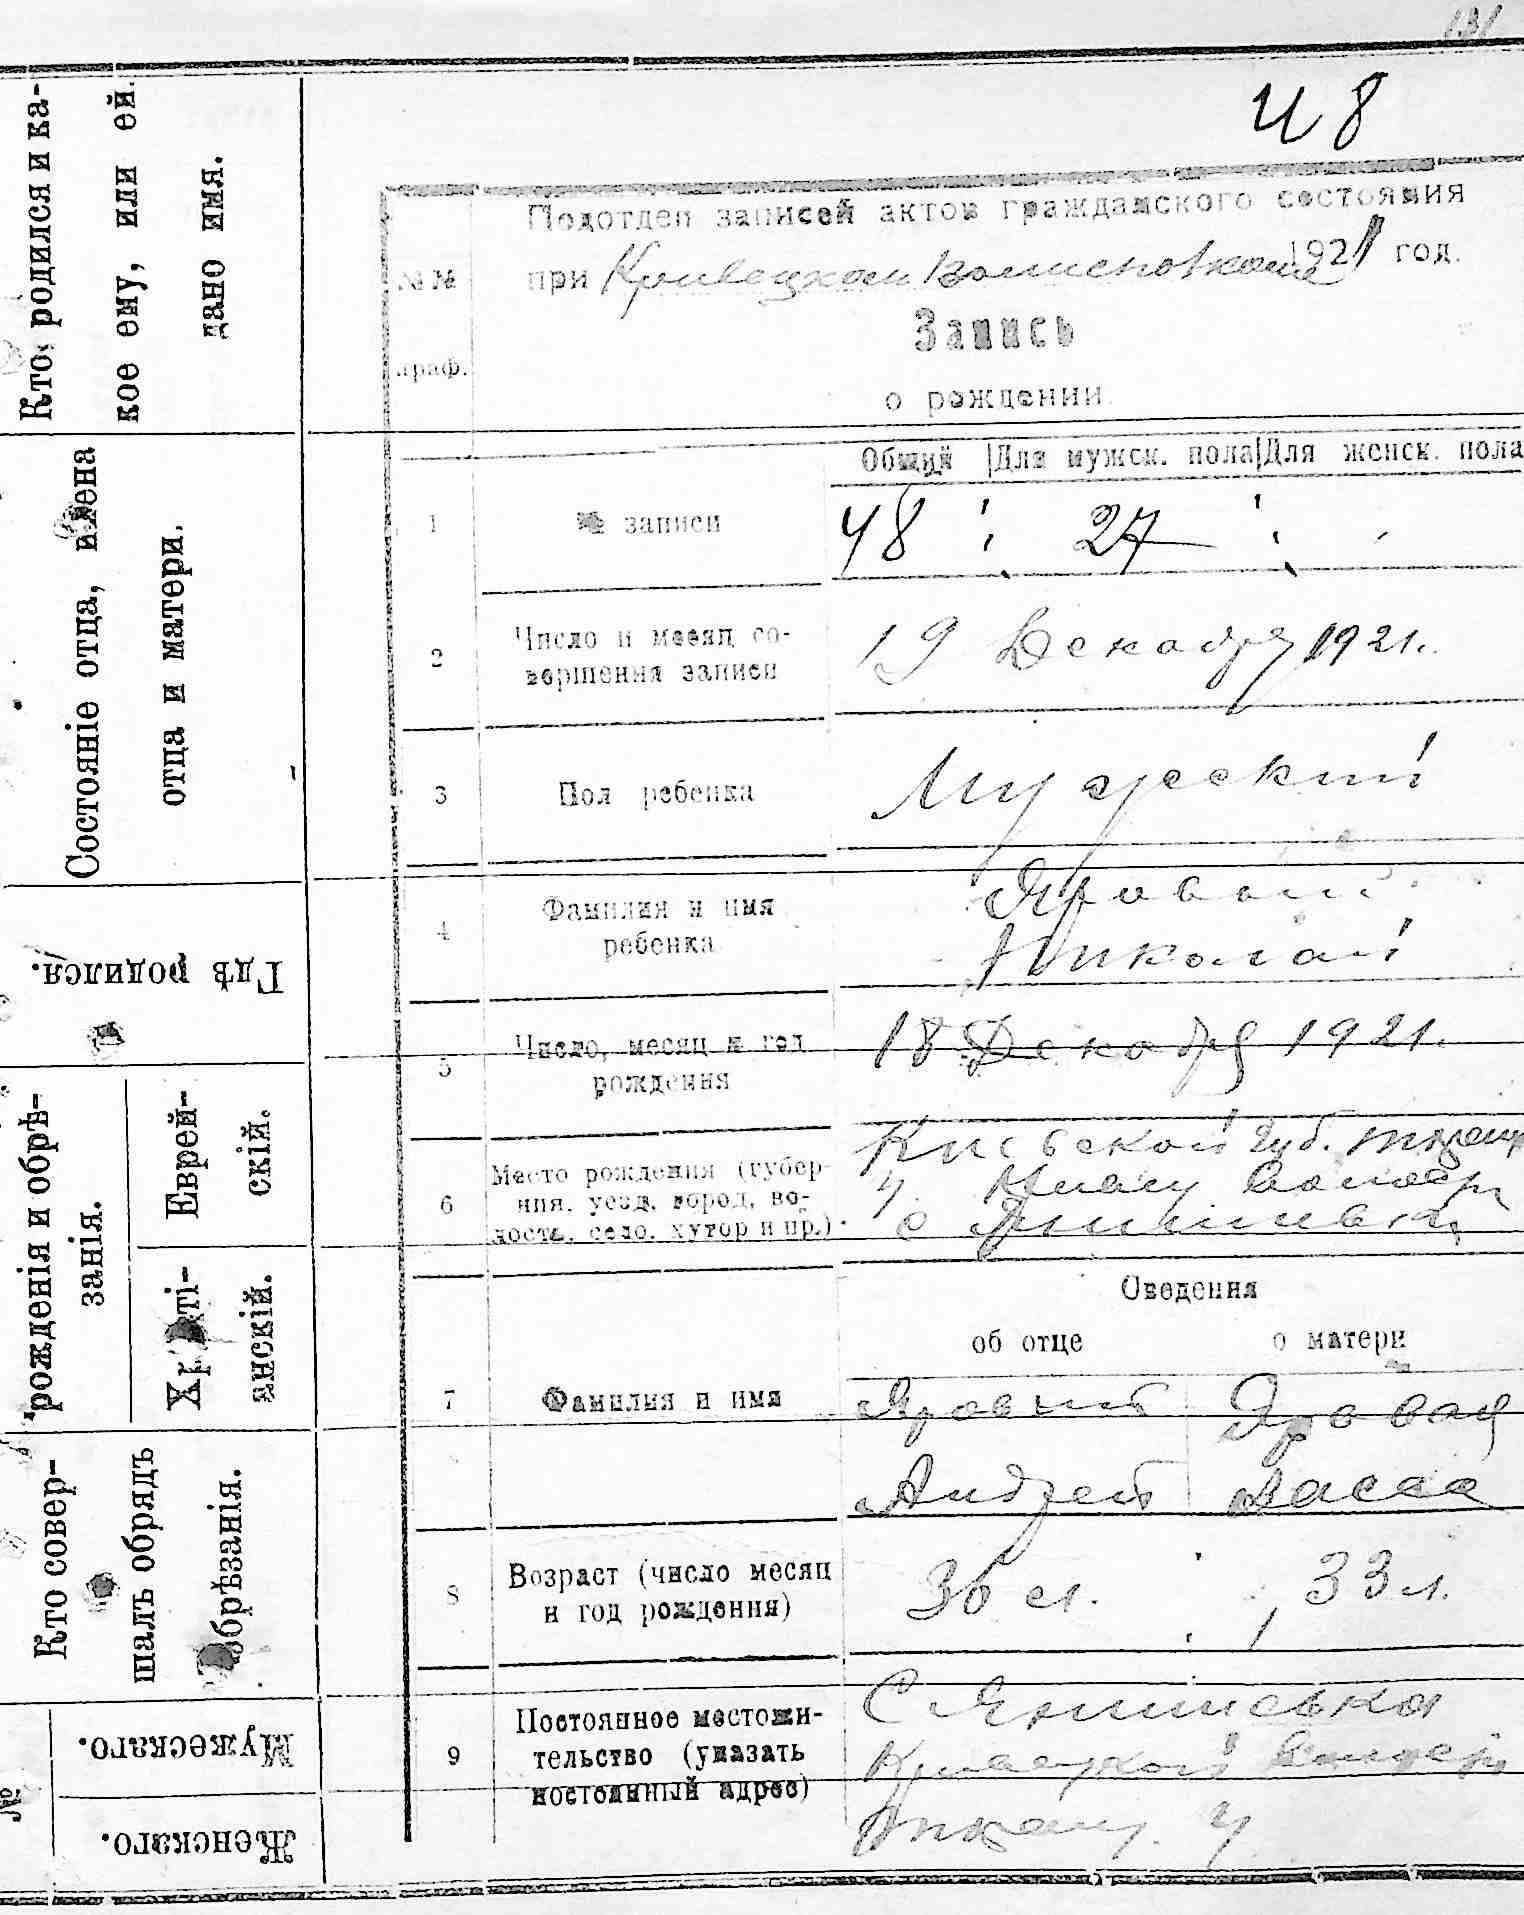 131
48
Кто родился и ка-
кое ему, или ей.
дано имя.
Состояніе отца, имена
отца и матери.
Гдѣ родился.
рожденія и обрѣ-
занія.
Еврей-
скій.
Христі-
анскій.
Кто совер-
шалъ обрядъ
обрѣзанія.
№
Мужескаго.
Женскаго.
№№
граф.
Подотдел записей актов гражданского состояния
при 1921 год.
Запись
о рождении
Общий Для мужск. пола Для женск. пола
1 № записи 48 27
2 Число и месяц со-
вершения записи
19 Декабря 1921.
3 Пол ребенка Мужеский
4 Фамилия и имя
ребенка
Яровый
Николай
5 Число, месяц и год
рождения
18 Декабря 1921.
6 Место рождения (губер-
ния, уезд, город, во-
лость, село, хутор и пр.)
Киевской губ.
у.
с
Сведения
об отце о матери
7 Фамилия и имя Яровый Яровая
Андрей Васса
8 Возраст (число месяц
и год рождения)
36 л. 33 л.
9 Постоянное местожи-
тельство (указать
постоянный адрес)
С
у